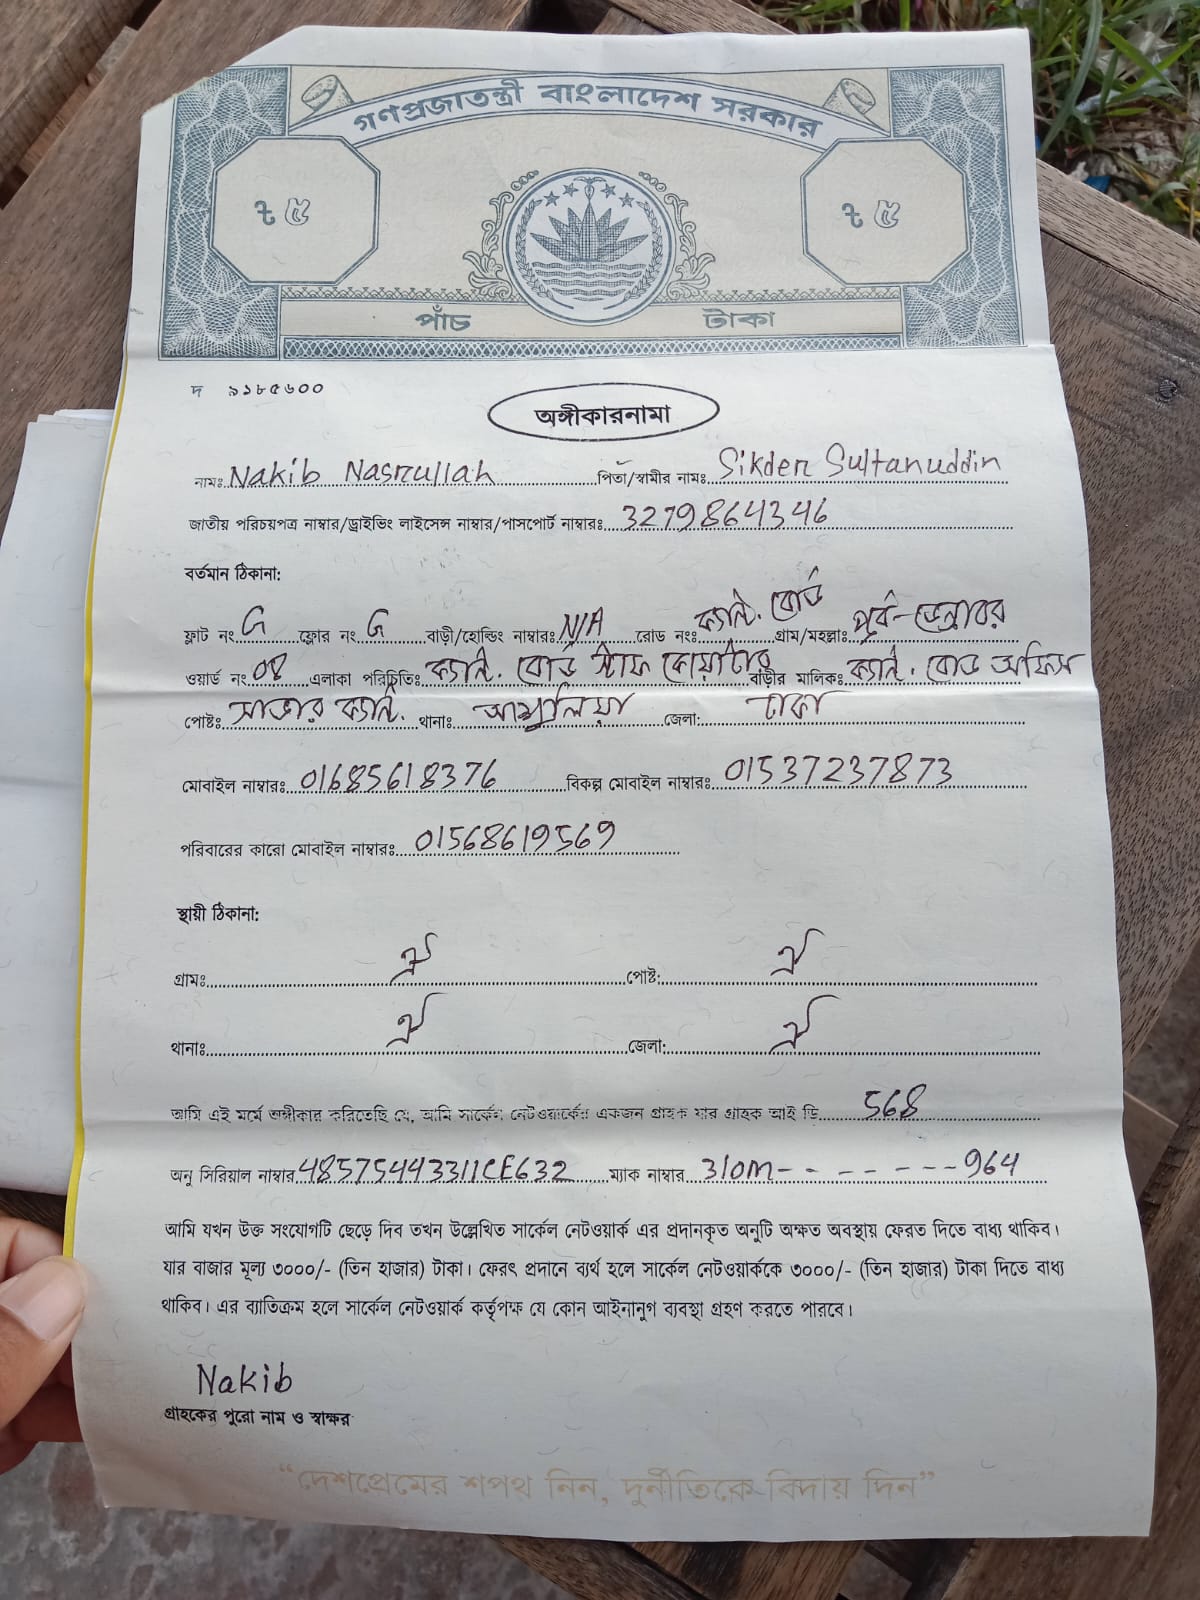 গণপ্রজাতন্ত্রী বাংলাদেশ সরকার
৳ ৫ ৳ ৫
পাঁচ টাকা
দ ৯১৮৫৬০০
অঙ্গীকারনামা
নামঃ Nakib Nasrullah পিতা/স্বামীর নামঃ Sikder Sultanuddin
জাতীয় পরিচয়পত্র নাম্বার/ড্রাইভিং লাইসেন্স নাম্বার/পাসপোর্ট নাম্বারঃ 3279864346
বর্তমান ঠিকানা:
ফ্লাট নং G ফ্লোর নং G বাড়ী/হোল্ডিং নাম্বারঃ N/A রোড নংঃ ক্যান্ট. বোর্ড গ্রাম/মহল্লাঃ পূর্ব-ডেন্ডাবর
ওয়ার্ড নং 08 এলাকা পরিচিতিঃ ক্যান্ট. বোর্ড স্টাফ কোয়ার্টার বাড়ীর মালিকঃ ক্যান্ট. বোর্ড অফিস
পোষ্টঃ সাভার ক্যান্ট. থানাঃ আশুলিয়া জেলা: ঢাকা
মোবাইল নাম্বারঃ 01685618376 বিকল্প মোবাইল নাম্বারঃ 01537237873
পরিবারের কারো মোবাইল নাম্বারঃ 01568619569
স্থায়ী ঠিকানা:
গ্রামঃ ঐ পোষ্ট: ঐ
থানাঃ ঐ জেলা: ঐ
আমি এই মর্মে অঙ্গীকার করিতেছি যে, আমি সার্কেল নেটওয়ার্কের একজন গ্রাহক যার গ্রাহক আই ডি 568
অনু সিরিয়াল নাম্বার 48575443311CE632 ম্যাক নাম্বার 310M- - - - - - - -964
আমি যখন উক্ত সংযোগটি ছেড়ে দিব তখন উল্লেখিত সার্কেল নেটওয়ার্ক এর প্রদানকৃত অনুটি অক্ষত অবস্থায় ফেরত দিতে বাধ্য থাকিব।
যার বাজার মূল্য ৩০০০/- (তিন হাজার) টাকা। ফেরৎ প্রদানে ব্যর্থ হলে সার্কেল নেটওয়ার্ককে ৩০০০/- (তিন হাজার) টাকা দিতে বাধ্য
থাকিব। এর ব্যাতিক্রম হলে সার্কেল নেটওয়ার্ক কর্তৃপক্ষ যে কোন আইনানুগ ব্যবস্থা গ্রহণ করতে পারবে।
Nakib
গ্রাহকের পুরো নাম ও স্বাক্ষর
“দেশপ্রেমের শপথ নিন, দুর্নীতিকে বিদায় দিন”